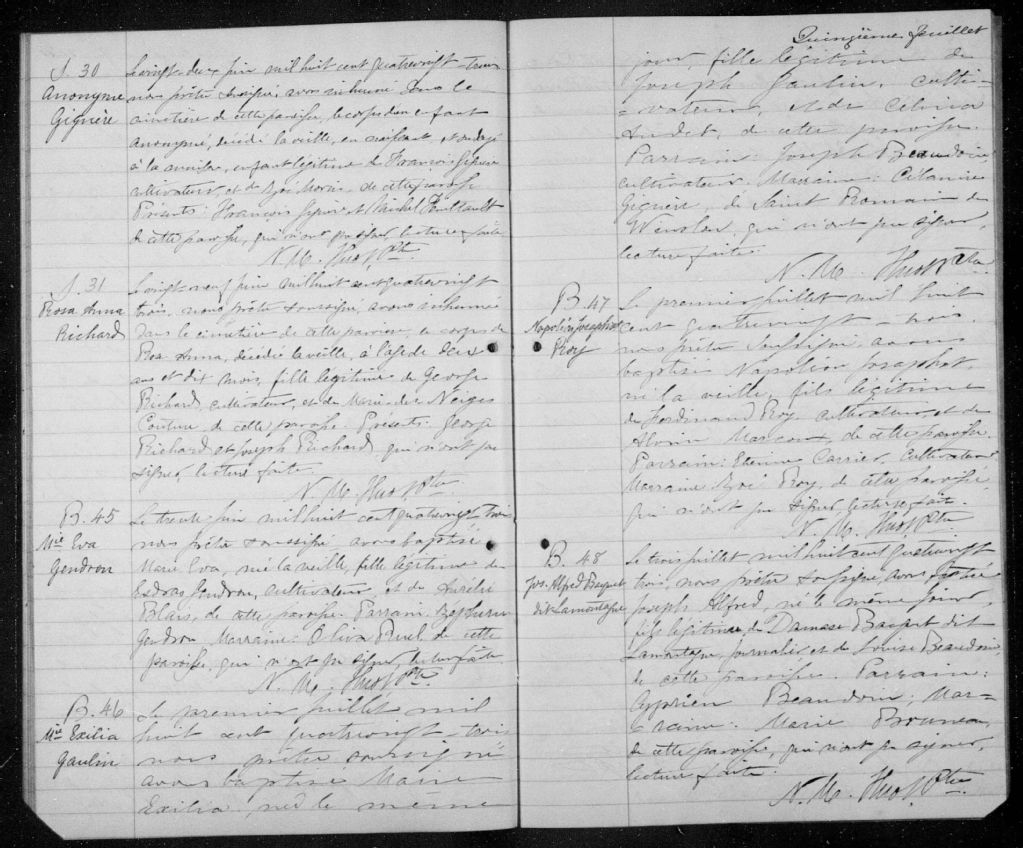 S. 30
Anonyme
Giguère
Le vingt-deux juin mil huit cent quatrevingt-trois
nous prêtre soussigné, avons inhumé dans le
cimetière de cette paroisse, le corps d'un enfant
anonyme, décédé la veille, en naissant, et ondoyé
à la maison, enfant légitime de François Giguère
cultivateur, et de Zoé Morin de cette paroisse
Présents: François Giguère et Michel Thibault
de cette paroisse, qui n'ont pu signer, lecture faite
N. M. Huot Ptre
S. 31
Rosa Anna
Richard
Le vingt-neuf juin mil huit cent quatrevingt
trois, nous prêtre soussigné, avons inhumé
dans le cimetière de cette paroisse, le corps de
Rosa Anna, décédée la veille, à l'âge de deux
ans et dix mois, fille légitime de George
Richard, cultivateur, et de Marie-des Neiges
Couture de cette paroisse. Présents: George
Richard et Joseph Richard qui n'ont pu
signer, lecture faite.
N. M. Huot Ptre
B. 45
Mie Eva
Gendron
Le trente juin mil huit cent quatrevingt-trois
nous prêtre soussigné avons baptisé
Marie Eva, née la veille, fille légitime de
Esdras Gendron, cultivateur, et de Aurélie
Blais, de cette paroisse. Parrain: Zéphirin
Gendron Marraine: Oliva Ruel de cette
paroisse, qui n'ont pu signer, lecture faite
N. M. Huot Ptre
B. 46
Mie Exilia
Gaulin
Le premier juillet mil
huit cent quatrevingt-trois
nous prêtre soussigné
avons baptisé Marie
Exilia, née le même
Quinzième feuillet
jour, fille légitime de
Joseph Gaulin, culti-
-vateur, et de Célina
Audet, de cette paroisse.
Parrain: Joseph Beaudoin
cultivateur. Marraine: Célanire
Giguère, de Saint Romain de
Winslow, qui n'ont pu signer,
lecture faite.
N. M. Huot Ptre
B. 47
Napoléon Josaphat
Roy
Le premier juillet mil huit
cent quatrevingt-trois
nous prêtre soussigné, avons
baptisé Napoléon Josaphat,
né la veille, fils légitime
de Ferdinand Roy cultivateur, et de
Marcoux, de cette paroisse.
Parrain: Etienne Carrier, cultivateur
Marraine: Zoé Roy, de cette paroisse,
qui n'ont pu signer, lecture faite.
N. M. Huot Ptre
B. 48
Jos. Alfred Baquet
dit Lamontagne
Le trois juillet mil huit cent quatrevingt
trois, nous prêtre soussigné, avons baptisé
Joseph Alfred, né le même jour,
fils légitime, de Damase Baquet dit
Lamontagne, journalier et de Louise Beaudoin,
de cette paroisse. Parrain:
Cyprien Beaudoin; Mar-
-raine: Marie Bruneau,
de cette paroisse, qui n'ont pu signer,
lecture faite.
N. M. Huot Ptre